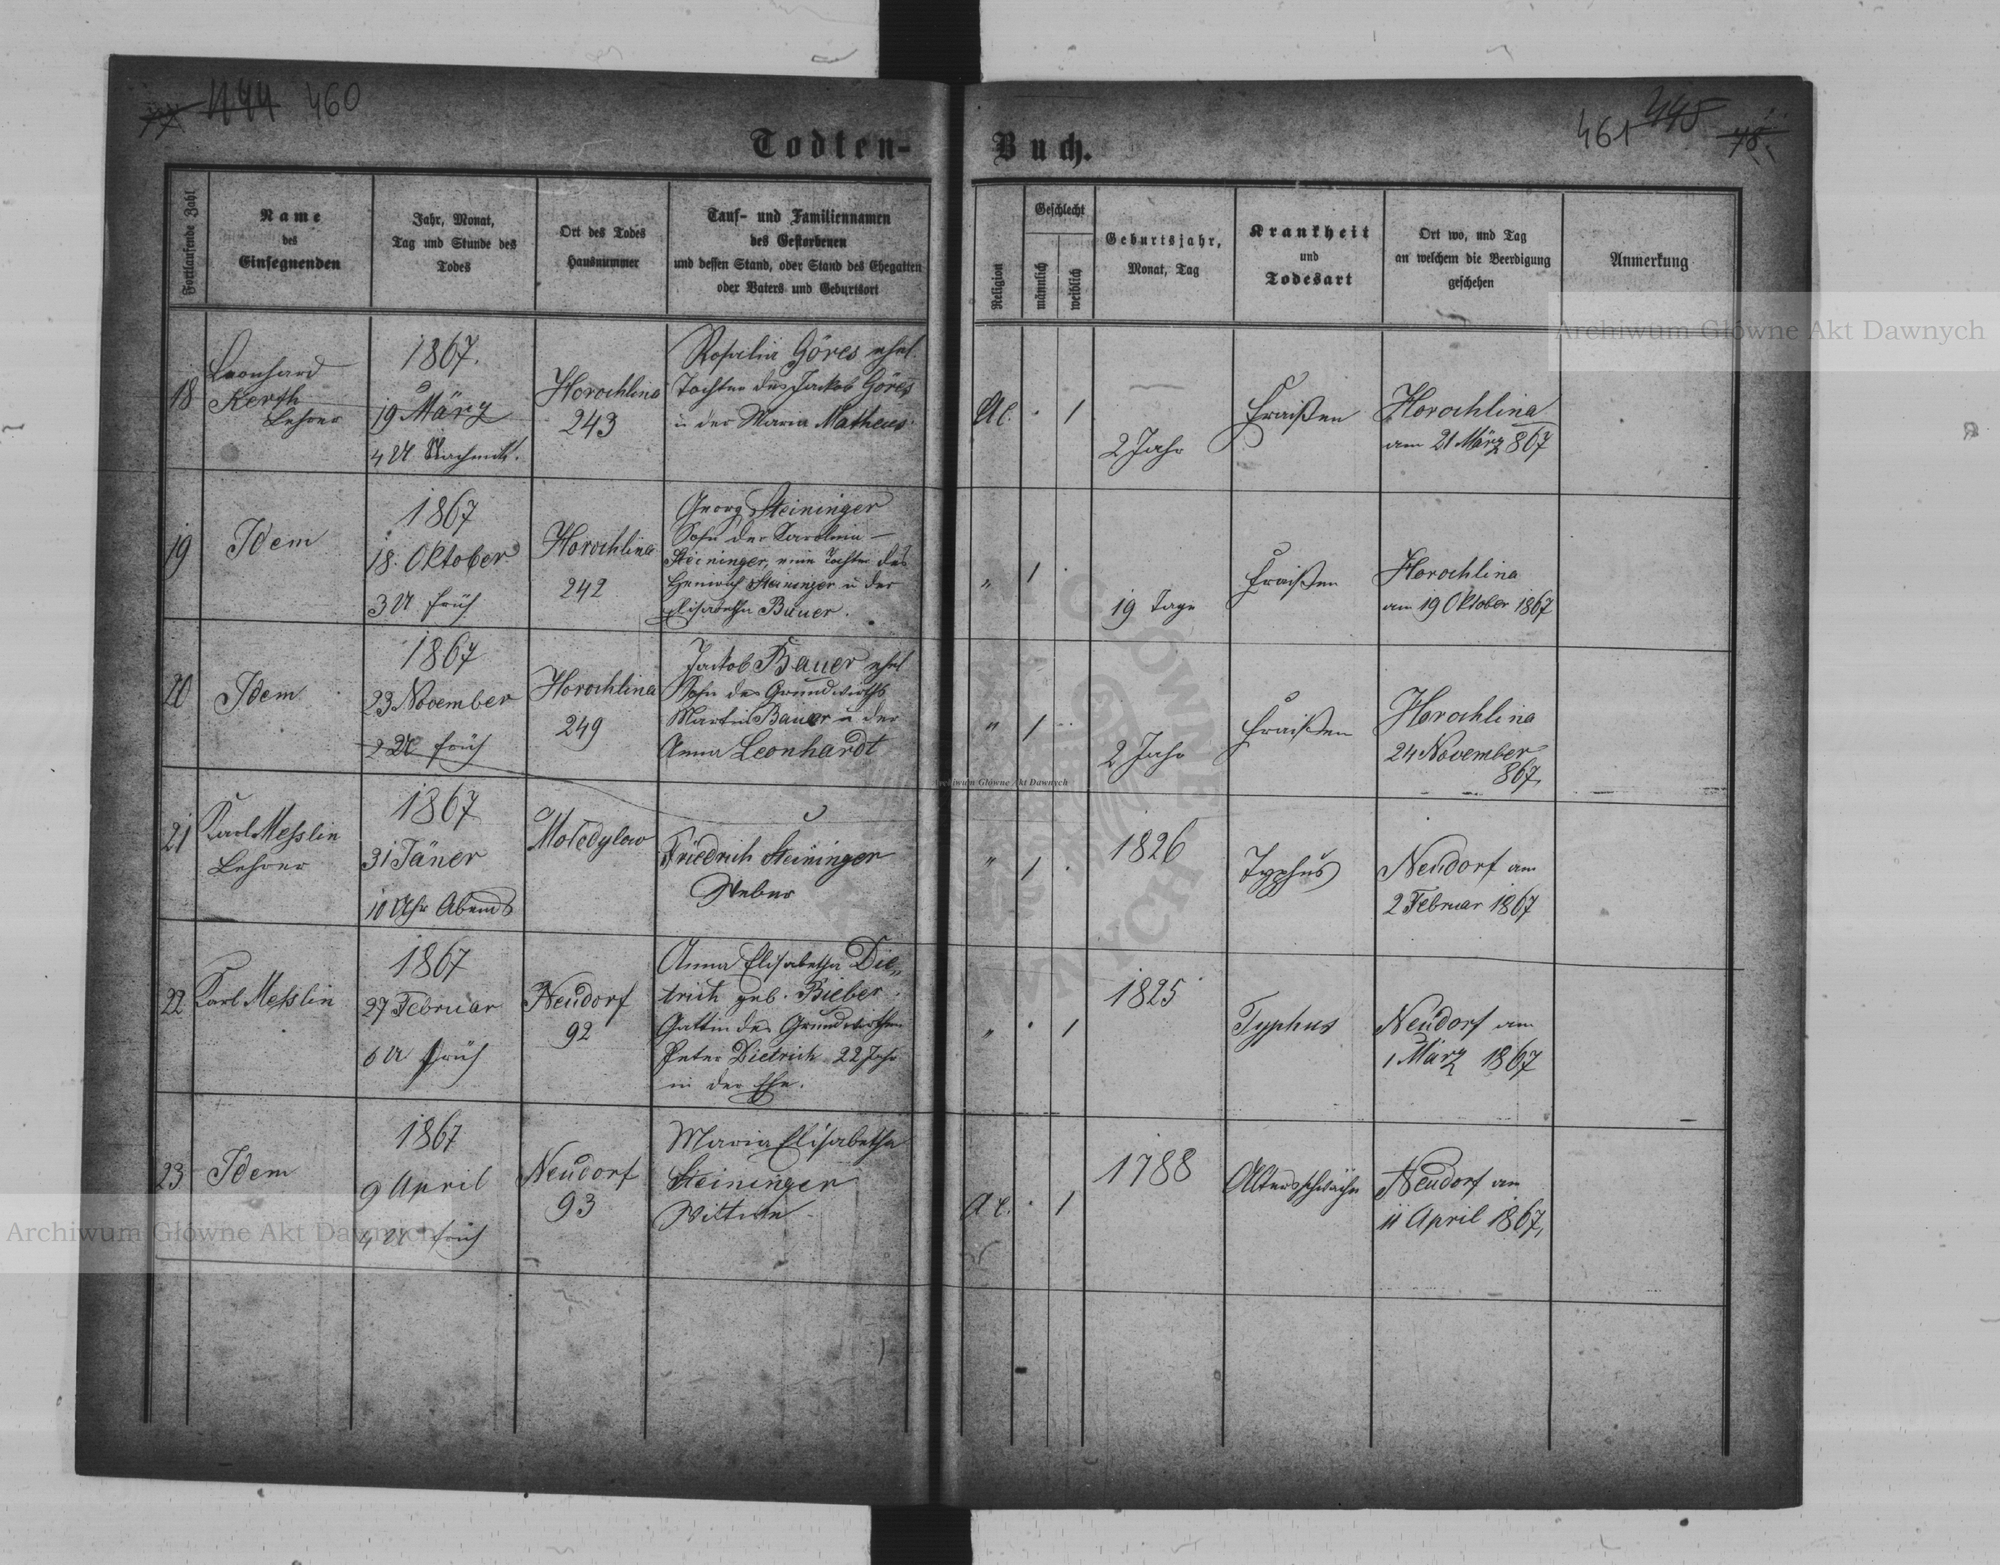 444 460
Todten-
Buch.
461 445 78.
Fortlaufende Zahl
Name
des
Einsegnenden
Jahr, Monat,
Tag und Stunde des
Todes
Ort des Todes
Hausnummer
Tauf- und Familiennamen
des Gestorbenen
und dessen Stand, oder Stand des Ehegatten
oder Vaters und Geburtsort
Religion
Geschlecht
männlich
weiblich
Geburtsjahr,
Monat, Tag
Krankheit
und
Todesart
Ort wo, und Tag
an welchem die Beerdigung
geschehen
Anmerkung
18
Leonhard
Kerth
Lehrer
1867.
19 März
4 U Nachmitt.
Horochlina
243
Rosalia Göres ehel.
Tochter des Jackob Göres
u der Maria Matheus
A.C.
1
2 Jahr
Fraißen
Horochlina
am 21 März 867
19
Idem
1867
18. Oktober
3 U früh
Horochlina
242
Georg Steininger
Sohn der Karolina
Steininger, eine Tochter des
Heinrich Steininger u der
Elisabetha Bauer.
"
1
19 Tage
Fraißen
Horochlina
am 19 Oktober 1867
20
Idem
1867
23 November
2 U früh
Horochlina
249
Jackob Bauer ehel
Sohn des Grundwirths
Martin Bauer u der
Anna Leonhardt
"
1
2 Jahr
Fraißen
Horochlina
24 November
867,
21
Karl Messlin
Lehrer
1867
31 Jäner
10 Uhr Abends
Molodylow
Friedrich Steininger
Weber
"
1
1826
Typhus
Neudorf am
2 Februar 1867
22
Karl Messlin
1867
27 Februar
6 U früh
Neudorf
92
Anna Elisabetha Die„
trich geb. Bieber
Gattin des Grundwirthen
Peter Dietrich 22 Jahr
in der Ehe.
"
1
1825
Typhus
Neudorf am
1 März 1867
23
Idem
1867
9 April
4 U früh
Neudorf
93
Maria Elisabetha
Steininger
Wittwe
A.C.
1
1788
Altersschwäche
Neudorf am
11 April 1867,
Archiwum Główne Akt Dawnych
Archiwum Główne Akt Dawnych
Archiwum Główne Akt Dawnych